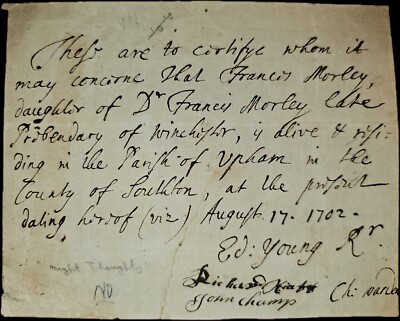 These are to certifye whom it
may concerne that Francis Morley,
daughter of Dr Francis Morley late
Prebendary of Winchester, is alive & resi-
ding in the Parish of Upham in the
County of Southton, at the present
dating hereof (viz) August. 17. 1702.
Ed: Young Rr.
night Thoughts
Richard
NO
John Champ
Ch: warden